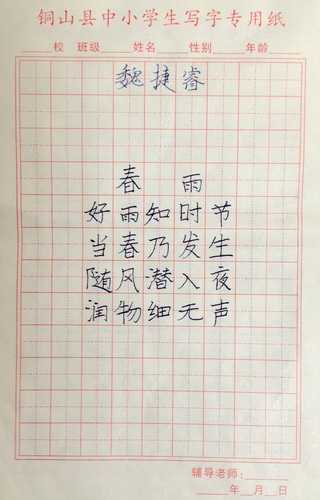 铜山县中小学生写字专用纸
校 班级 姓名 性别 年龄
魏捷睿
春 雨
好雨知时节
当春乃发生
随风潜入夜
润物细无声
辅导老师:
年 月 日